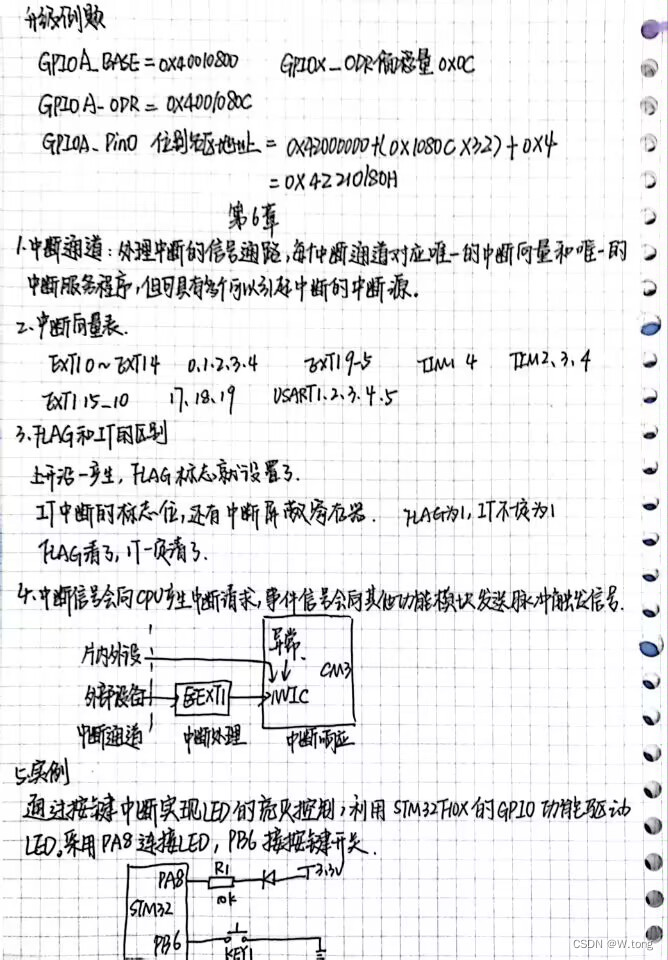 升级例题
GPIOA_BASE=0X40010800 GPIOX_ODR偏移量0X0C
GPIOA-ODR=0X4001080C
GPIOA_Pin0 位别名区地址=0X42000000+(0X1080C X32)+0X4
=0X42210180H
第6章
1.中断通道:处理中断的信号通路,每个中断通道对应唯一的中断向量和唯一的
中断服务程序,但可具有多个可以引起中断的中断源。
2.中断向量表.
EXTI0~EXTI4 0.1.2.3.4 EXTI9-5 TIM1 4 TIM2、3、4
EXTI15_10 17、18、19 USART1.2.3.4.5
3.FLAG和IT的区别
上升沿一产生,FLAG标志就设置了.
IT中断的标志位,还有中断屏蔽寄存器. FLAG为1,IT不一定为1
FLAG清了,IT一定清了.
4.中断信号会向CPU产生中断请求,事件信号会向其他功能模块发送脉冲触发信号.
片内外设 异常. CM3
外部设备 EXTI NVIC
中断通道 中断处理 中断响应
5.实例
通过按键中断实现LED的亮灭控制,利用STM32F10X的GPIO功能驱动
LED。采用PA8连接LED,PB6接按键开关.
PA8 R1 3.3V
STM32 10K
PB6 KEY1
CSDN @W.tong